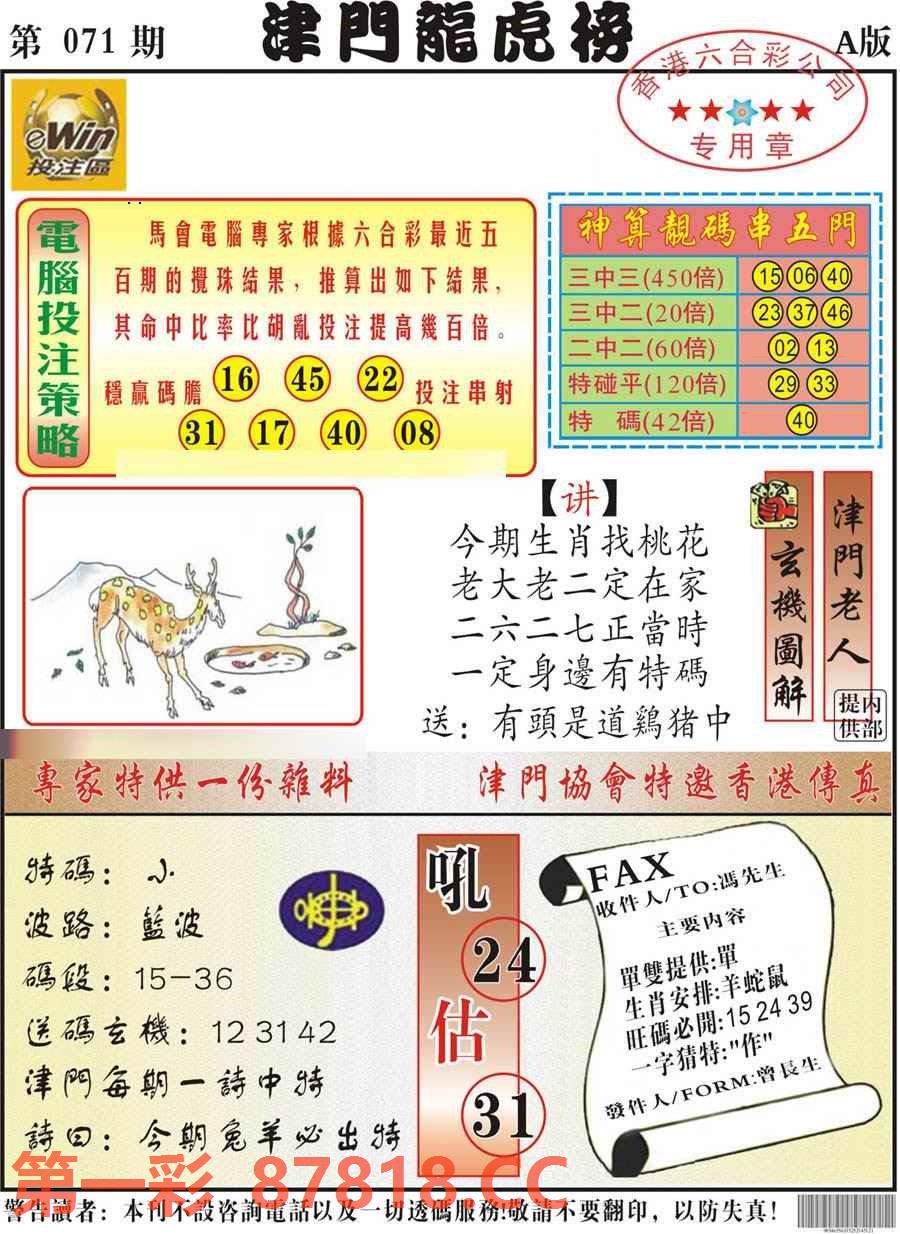 第 071 期
津門龍虎榜
A版
香港六合彩公司
专用章
eWin
投注區
電腦投注策略
馬會電腦專家根據六合彩最近五
百期的攪珠結果，推算出如下結果，
其命中比率比胡亂投注提高幾百倍。
穩贏碼膽 16 45 22 投注串射
31 17 40 08
神算靚碼串五門
三中三(450倍) 15 06 40
三中二(20倍) 23 37 46
二中二(60倍) 02 13
特碰平(120倍) 29 33
特 碼(42倍) 40
【讲】
今期生肖找桃花
老大老二定在家
二六二七正當時
一定身邊有特碼
送：有頭是道鷄猪中
玄機圖解
津門老人
内部提供
專家特供一份雜料
津門協會特邀香港傳真
特碼：小
波路：藍波
碼段：15-36
送碼玄機：12 31 42
津門每期一詩中特
詩曰：今期兔羊必出特
吼
24
估
31
FAX
收件人/TO:馮先生
主要内容
單雙提供:單
生肖安排:羊蛇鼠
旺碼必開:15 24 39
一字猜特:"作"
發件人/FORM:曾長生
第一彩 87818.CC
警告讀者：本刊不設咨詢電話以及一切透碼服務!敬請不要翻印，以防失真！